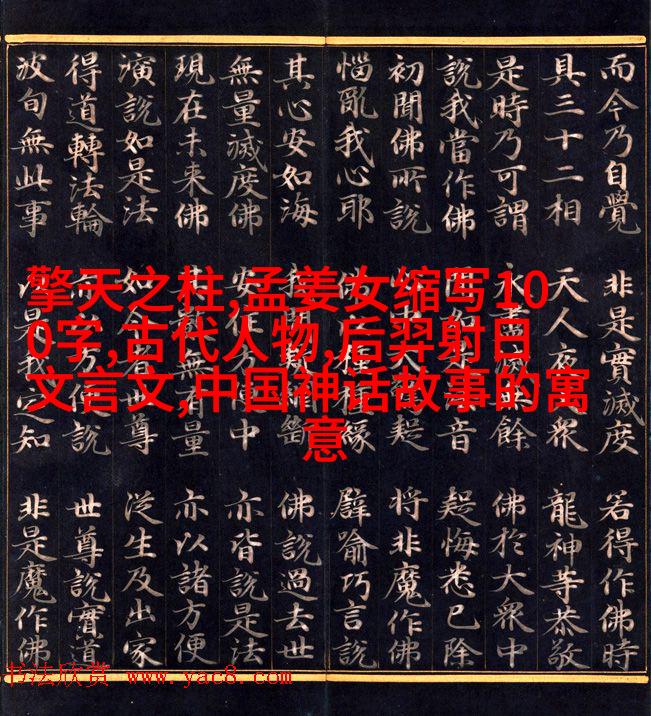 而今乃自覺 非是實滅度 若得作佛時
具三十二相 天人夜眾 龍神等恭敬
是時乃可謂 永盡滅無餘 佛於大眾中
說我當作佛 是音 疑悔悉已除
初聞佛所說 中大疑 將非魔作佛
惱亂我心耶 種緣 譬喻巧言說
其心安如海 我聞斷 佛說過去世
無量滅度佛 安住方便中 亦皆說是法
現在未來佛 數無有量 亦以諸方便
演說如是法 如今者世尊 從生及出家
得道轉法輪 以方便說 世尊說實道
波旬無此事 以是我定知 非是魔作佛
擎天之柱,孟姜女缩写10
0字,古代人物,后羿射日
文言文,中国神话故事的寓
意
书法欣赏 www.yac8.com